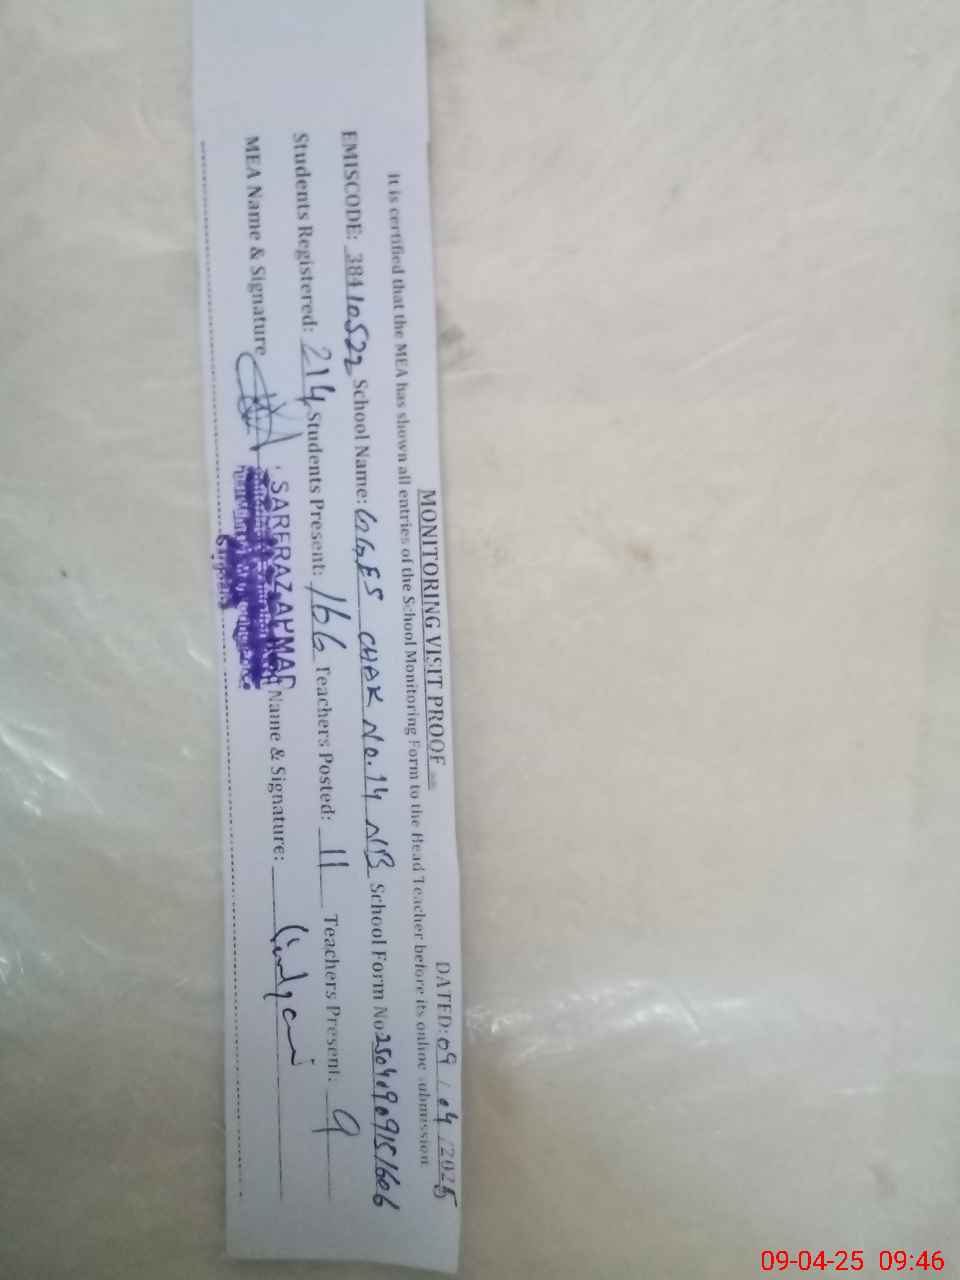 MONITORING VISIT PROOF
DATED: 09 / 04 / 2025
It is certified that the MEA has shown all entries of the School Monitoring Form to the Head Teacher before its online submission
EMISCODE: 38410522 School Name: GGES CHAK No. 14 NB School Form No 25040909151606
Students Registered: 214 Students Present: 166 Teachers Posted: 11 Teachers Present: 9
MEA Name & Signature SARFRAZ AHMAD Name & Signature:
09-04-25 09:46